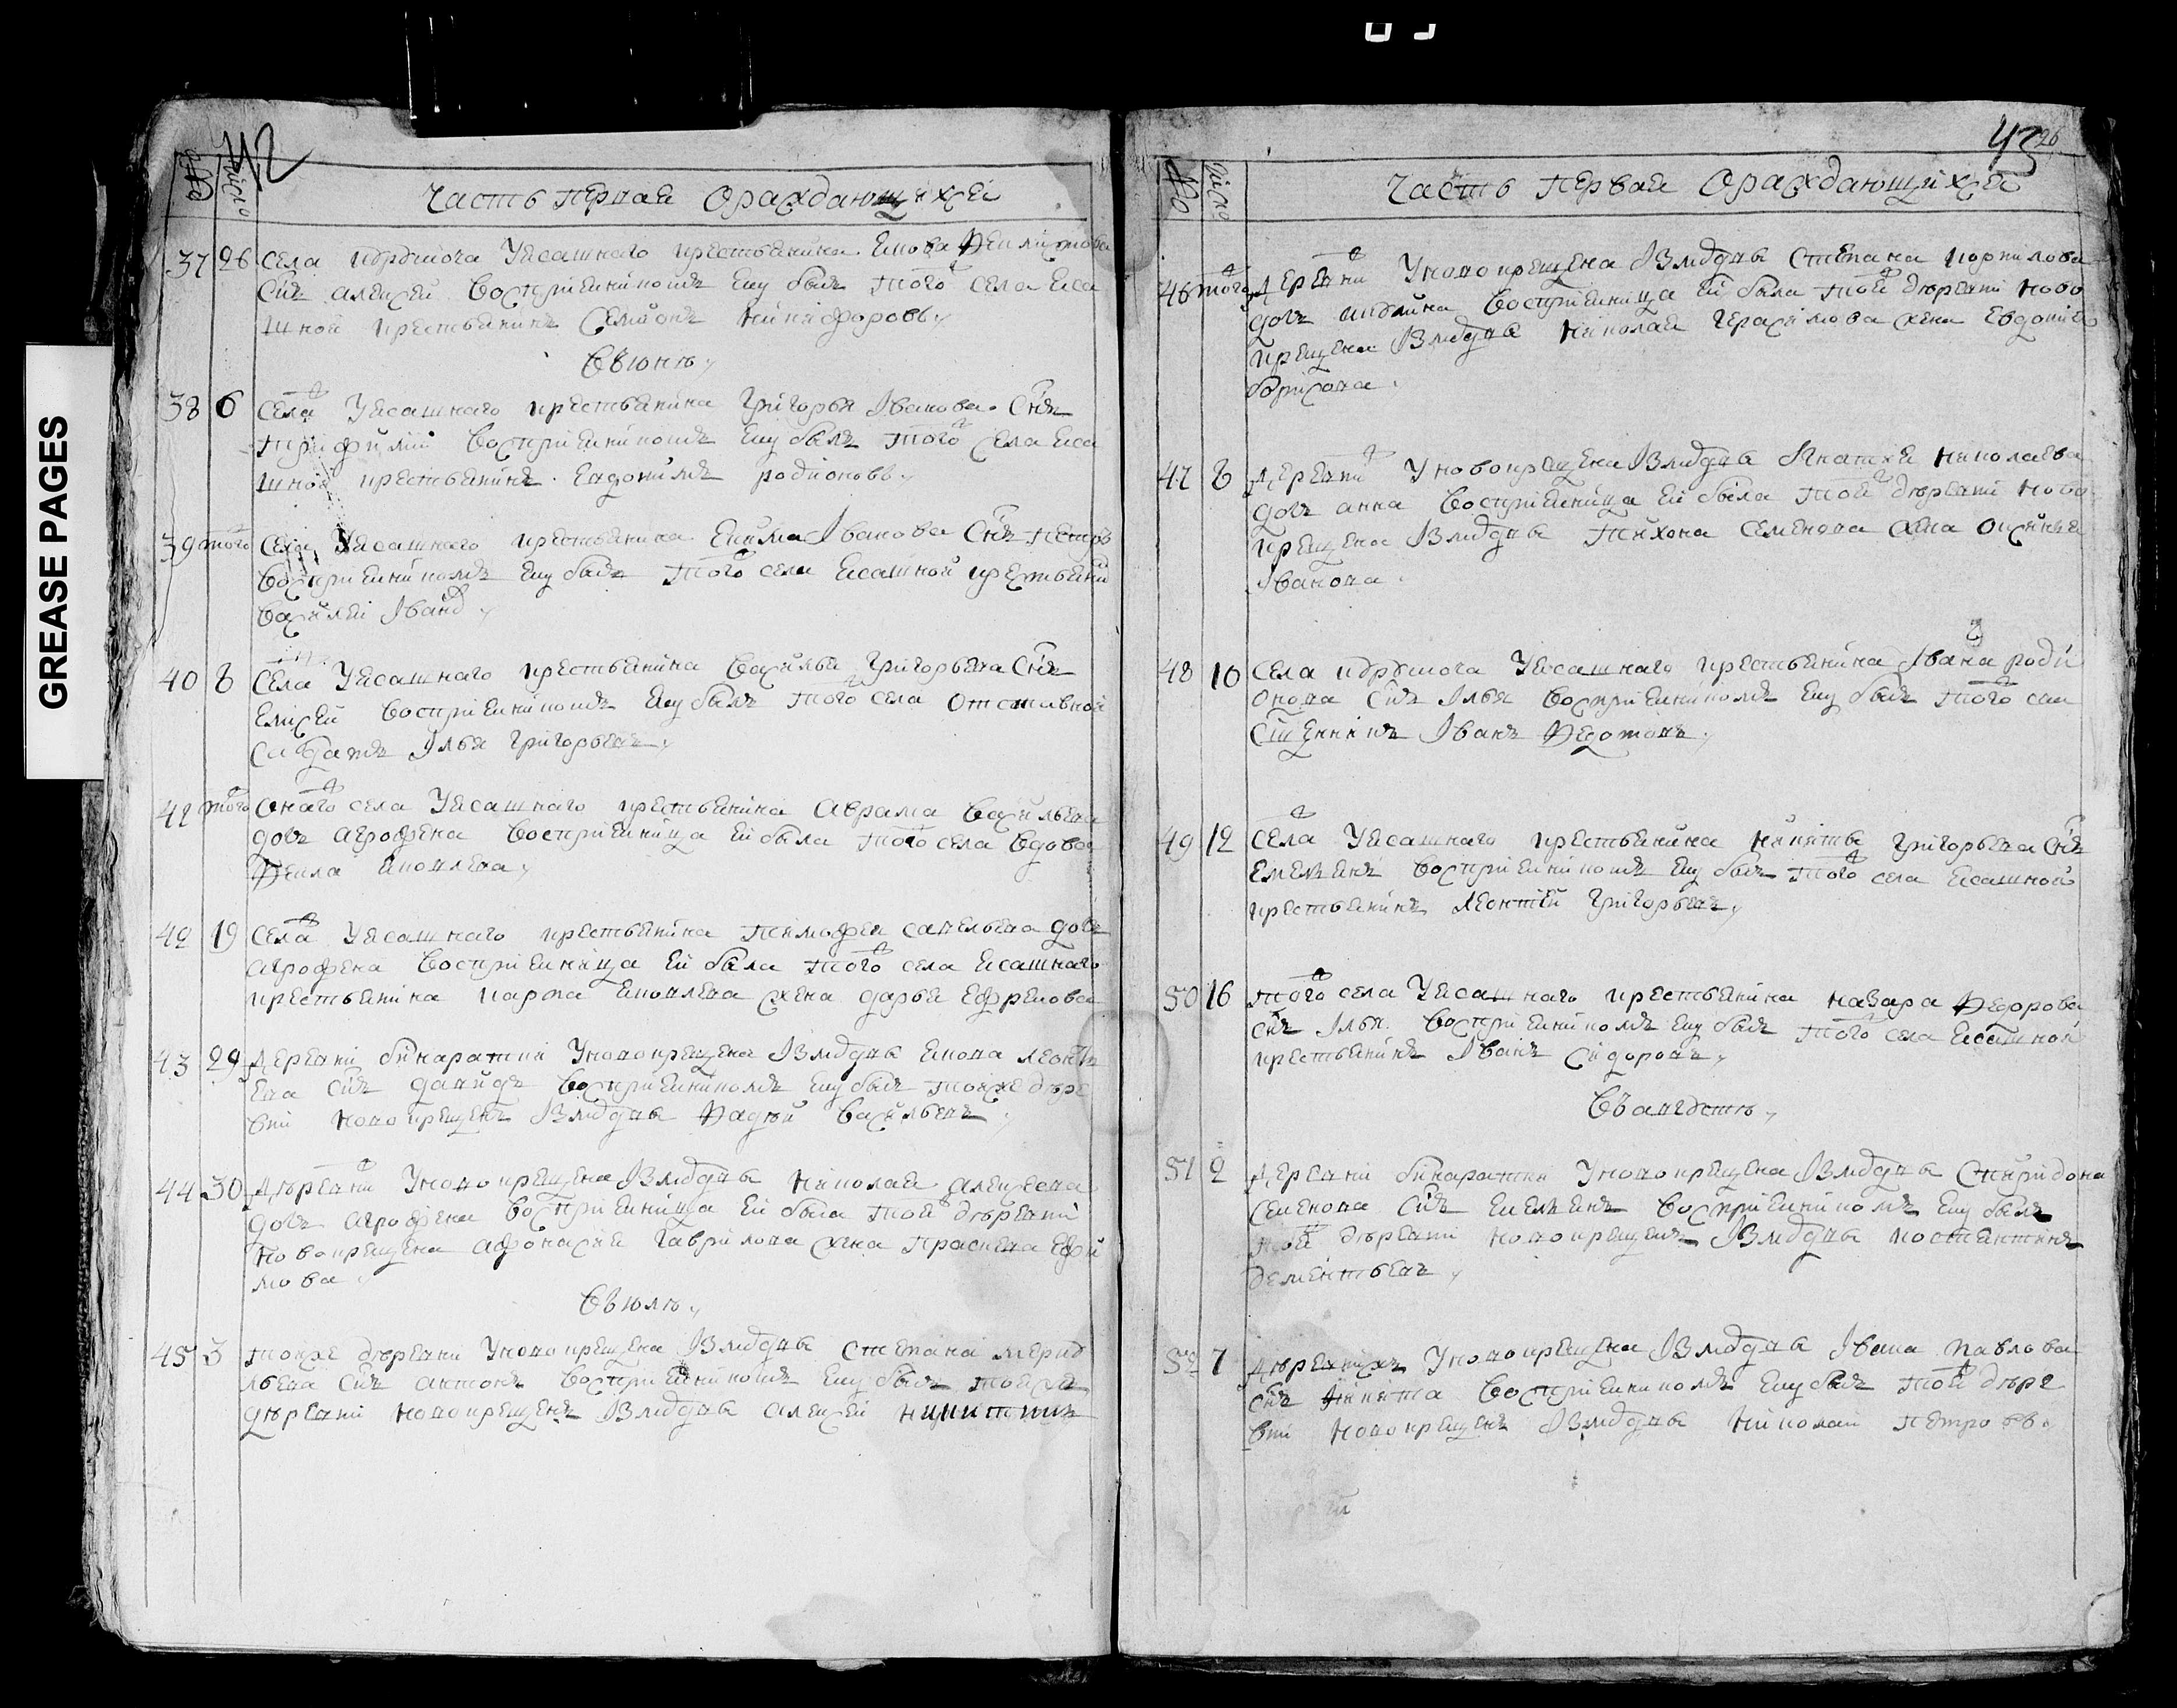 GREASE PAGES
42
№
число
Часть первая Ораждающихсѧ
37 26 села Уясашнаго крестьянина
снъ алексей воспрiемникомъ ему былъ того села яса
шной крестьянинъ Семионъ никифоровъ
Въ юнѣ
38 6 села Уясашнаго крестьянина григорья Iванова снъ
трифилiй воспрiемникомъ ему былъ того села яса
шной крестьянинъ евдокимъ родионовъ
39 того села Уясашнаго крестьянина екима Iванова снъ петръ
воспрiемникомъ ему былъ того села ясашной крестьянин
василей Iвано
40 8 села Уясашнаго крестьянина василья григорьева снъ
елисей воспрiемникомъ ему былъ того села отставной
салдатъ Iлья григорьевъ
41 того онаго села Уясашнаго крестьянина аврама васильева
дочь агрофена воспрiемница ей была того села вдова
фекла яковлева
42 19 села Уясашнаго крестьянина тимофея савельева дочь
агрофена воспрiемница ей была того села ясашнаго
крестьянина карпа яковлева жена дарья ефремова
43 29 деревни бикаратки Уновокрещена Iзмордвы якова леонть
ева снъ давидъ воспрiемникомъ ему былъ тояже дѣре
вни новокрещенъ Iзмордвы фадѣй васильевъ
44 30 дѣревни Уновокрещена Iзмордвы николая алексеева
дочь агрофена воспрiемница ей была той дѣревни
новокрещена афонасия гаврилова жена прасковья ефи
мова
Въ юлѣ
45 3 тояже дѣревни Уновокрещена Iзмордвы степана
снъ антонъ воспрiемникомъ ему былъ тояже
дѣревни новокрещенъ Iзмордвы алексей никитинъ
43 26
№
число
Часть первая Ораждающихсѧ
46 того деревни Уновокрещена Iзмордвы степана корнилова
дочь воспрiемница ей была той дѣревни ново
крещена Iзмордвы николая герасимова жена евдокия
борисова
47 8 деревни Уновокрещена Iзмордвы Игнатья николаева
дочь анна воспрiемница ей была той дѣревни ново
крещена Iзмордвы тихона семенова жена оксинья
Iванова
48 10 села Уясашнаго крестьянина Iвана роди
онова снъ Iлья воспрiемникомъ ему былъ того села
сщенникъ Iванъ федотовъ
49 12 села Уясашнаго крестьянина никиты григорьева снъ
емельянъ воспрiемникомъ ему былъ того села ясашной
крестьянинъ леонтей григорьевъ
50 16 того села Уясашнаго крестьянина назара федорова
снъ Iлья воспрiемникомъ ему былъ того села ясашной
крестьянинъ Iванъ сидоровъ
Въ августѣ
51 2 деревни бикаратки Уновокрещена Iзмордвы спиридона
семенова снъ емельянъ воспрiемникомъ ему былъ
той дѣревни новокрещенъ Iзмордвы костянтинъ
дементьевъ
52 7 Уновокрещена Iзмордвы Iвана павлова
снъ никита воспрiемникомъ ему былъ той дѣре
вни новокрещенъ Iзмордвы николай петровъ